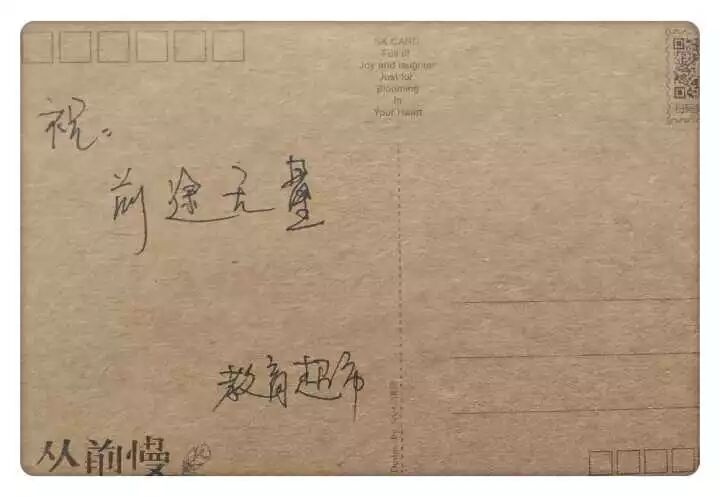 SK CARD
Full of
Joy and laughter
Just for
Blooming
In
Your Heart
祝:
前途无量
教育超市
从前慢